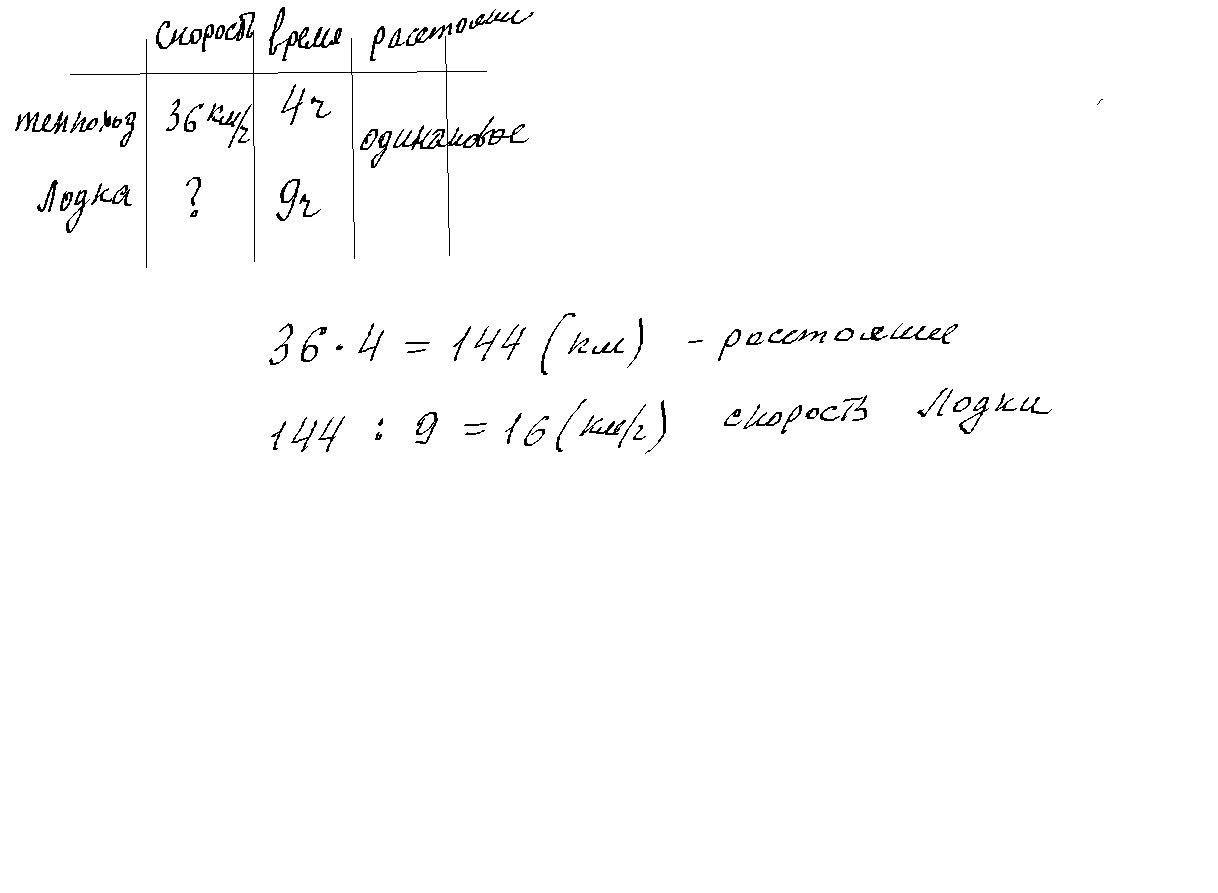 скорость время расстояние
теплоход 36 км/ч 4ч одинаковое
Лодка ? 9ч
36 · 4 = 144 (км) - расстояние
144 : 9 = 16 (км/ч) скорость Лодки